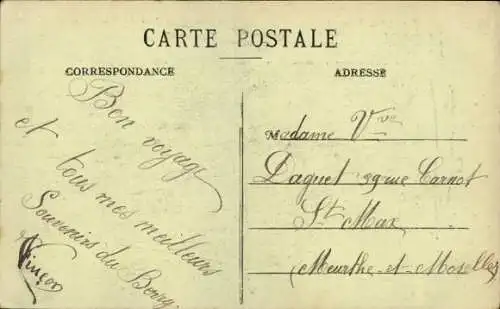 CARTE POSTALE
CORRESPONDANCE
Bon voyage
et tous mes meilleurs
Souvenirs du Bourg.
ADRESSE
Madame Vve
Daguet 39 rue Carnot
St Max
Meurthe-et-Moselle